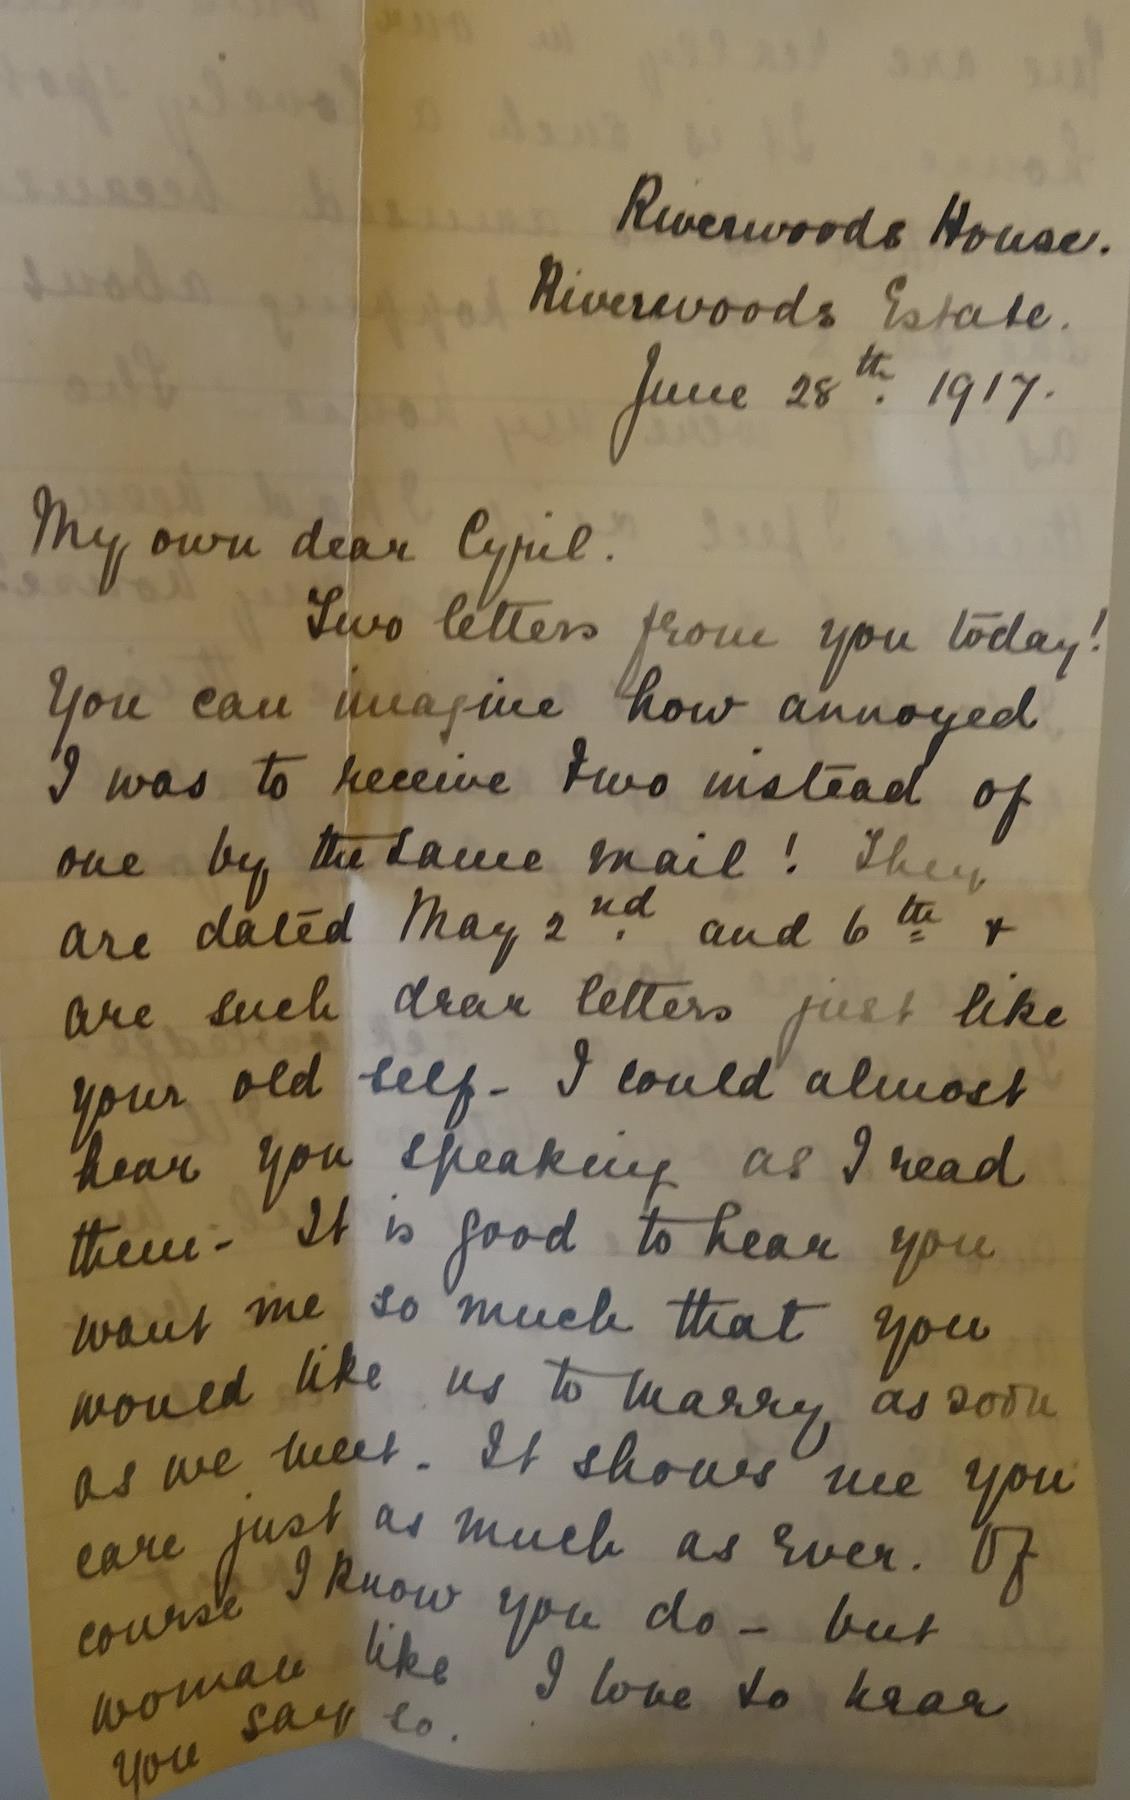 Riverwoods House.
Riverwoods Estate.
June 28th. 1917.
My own dear Cyril.
Two letters from you today!
You can imagine how annoyed
I was to receive two instead of
one by the same mail! They
are dated May 2nd. and 6th &
are such dear letters just like
your old self - I could almost
hear you speaking as I read
them - It is good to hear you
want me so much that you
would like us to marry as soon
as we meet. It shows me you
care just as much as ever. Of
course I know you do - but
woman like I love to hear
you say so.